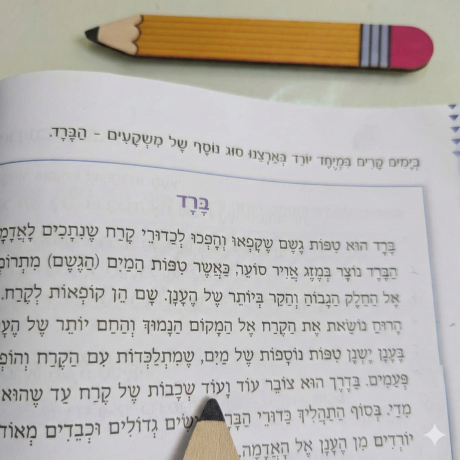 בְּיָמִים קָרִים בִּמְיֻחָד יוֹרֵד בְּאַרְצֵנוּ סוּג נוֹסָף שֶׁל מִשְׁקָעִים – הַבָּרָד.
בָּרָד
בָּרָד הוּא טִפּוֹת גֶּשֶׁם שֶׁקָּפְאוּ וְהָפְכוּ לְכַדּוּרֵי קֶרַח שֶׁנִּתָּכִים לָאֲדָמָה
הַבָּרָד נוֹצָר בְּמֶזֶג אֲוִיר סוֹעֵר, כַּאֲשֶׁר טִפּוֹת הַמַּיִם (הַגֶּשֶׁם)
אֶל הַחֵלֶק הַגָּבוֹהַּ וְהַקַּר בְּיוֹתֵר שֶׁל הֶעָנָן. שָׁם הֵן קוֹפְאוֹת לְקֶרַח.
הָרוּחַ נוֹשֵׂאת אֶת הַקֶּרַח אֶל הַמָּקוֹם הַנָּמוּךְ וְהַחַם יוֹתֵר שֶׁל
בֶּעָנָן יֶשְׁנָן טִפּוֹת נוֹסָפוֹת שֶׁל מַיִם, שֶׁמִּתְלַכְּדוֹת עִם הַקֶּרַח
פְּעָמִים. בַּדֶּרֶךְ הוּא צוֹבֵר עוֹד וָעוֹד שְׁכָבוֹת שֶׁל קֶרַח עַד שֶׁהוּא
מִדַּי. בְּסוֹף הַתַּהֲלִיךְ כַּדּוּרֵי גְּדוֹלִים וּכְבֵדִים מְאוֹד
יוֹרְדִים מִן הֶעָנָן אֶל הָאֲדָמָה.